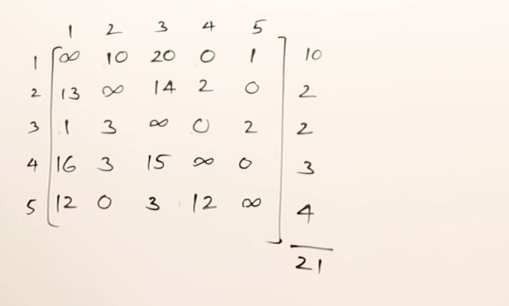 1 2 3 4 5
1 ∞ 10 20 0 1 10
2 13 ∞ 14 2 0 2
3 1 3 ∞ 0 2 2
4 16 3 15 ∞ 0 3
5 12 0 3 12 ∞ 4
21